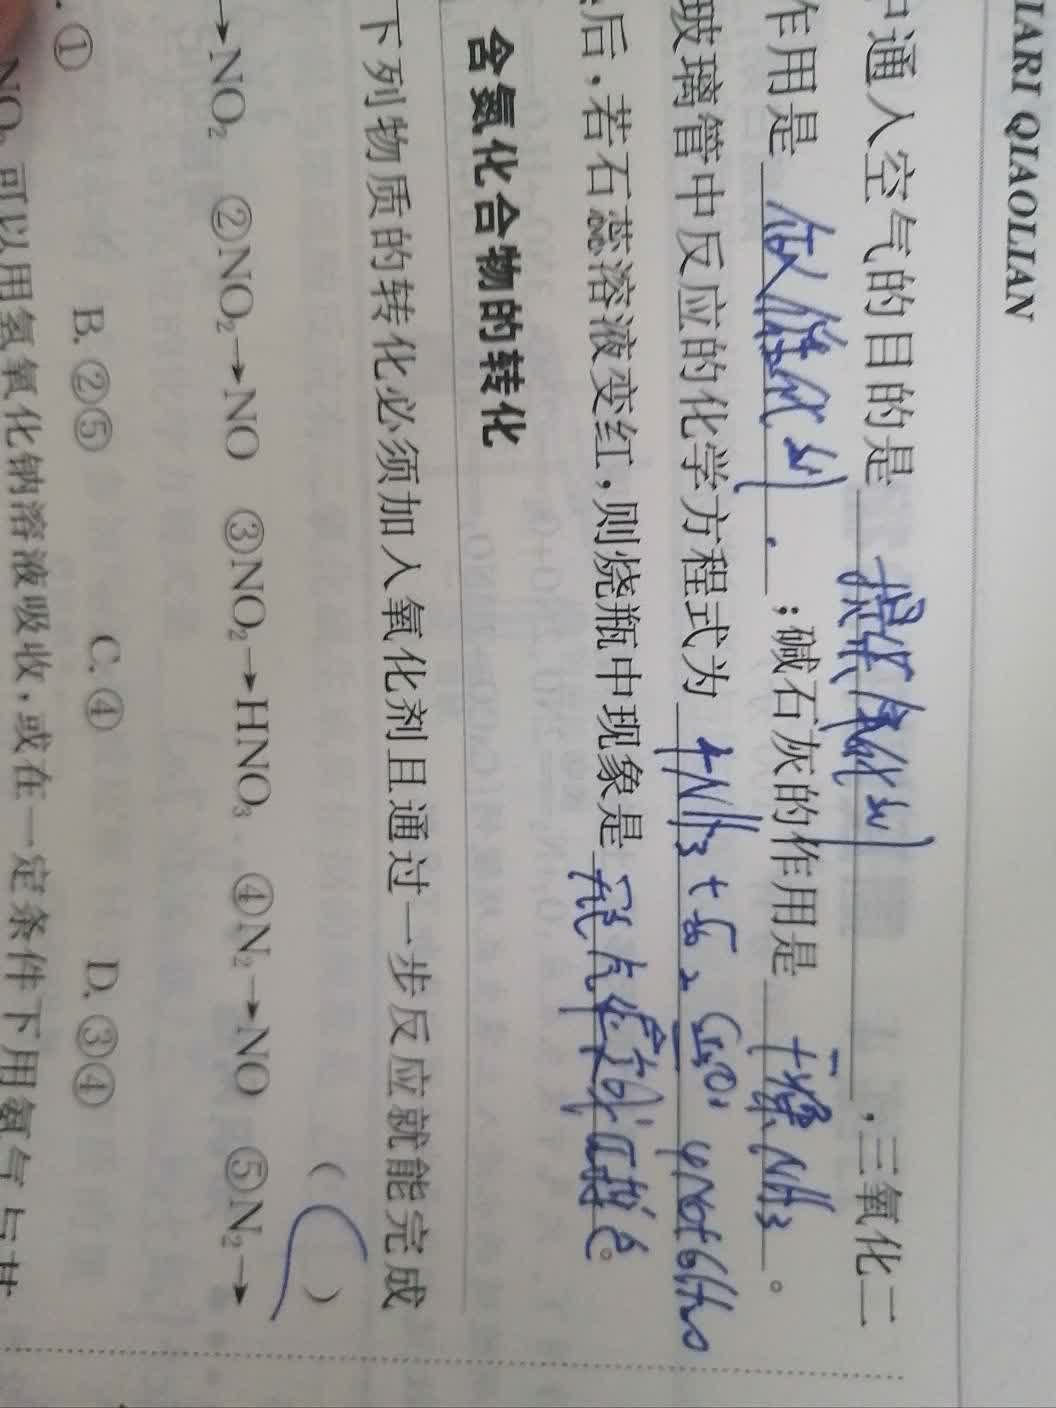 LIARI QIAOLIAN
中通入空气的目的是 提供氧化剂 ,三氧化二
作用是 做催化剂 ;碱石灰的作用是 干燥NH3 。
玻璃管中反应的化学方程式为 4NH3+5O2 Cr2O3 4NO+6H2O
后,若石蕊溶液变红,则烧瓶中现象是 。
含氮化合物的转化
下列物质的转化必须加入氧化剂且通过一步反应就能完成
( C )
→NO₂ ②NO₂→NO ③NO₂→HNO₃ ④N₂→NO ⑤N₂→
. ① B. ②⑤ C. ④ D. ③④
NO 可以用氢氧化钠溶液吸收,或在一定条件下用氨气与其